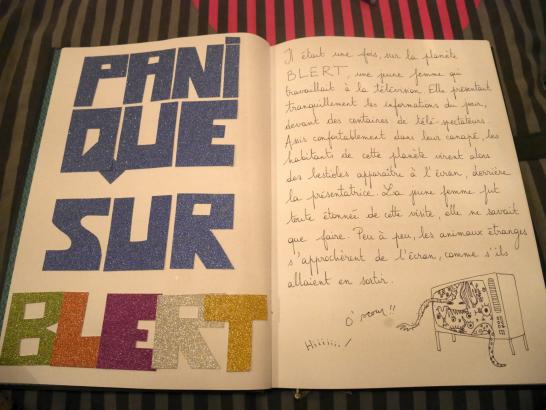 PANI
QUE
SUR
BLERT
Il était une fois, sur la planète
BLERT, une jeune femme qui
travaillait à la télévision. Elle présentait
tranquillement les informations du jour,
devant des centaines de télé-spectateurs.
Assis confortablement dans leurs canapé, les
habitants de cette planète virent alors
des bestioles apparaître à l'écran, derrière
la présentatrice. La jeune femme fut
toute étonnée de cette visite, elle ne savait
que faire. Peu à peu, les animaux étranges
s'approchèrent de l'écran, comme s'ils
allaient en sortir.
Hiiiiii!